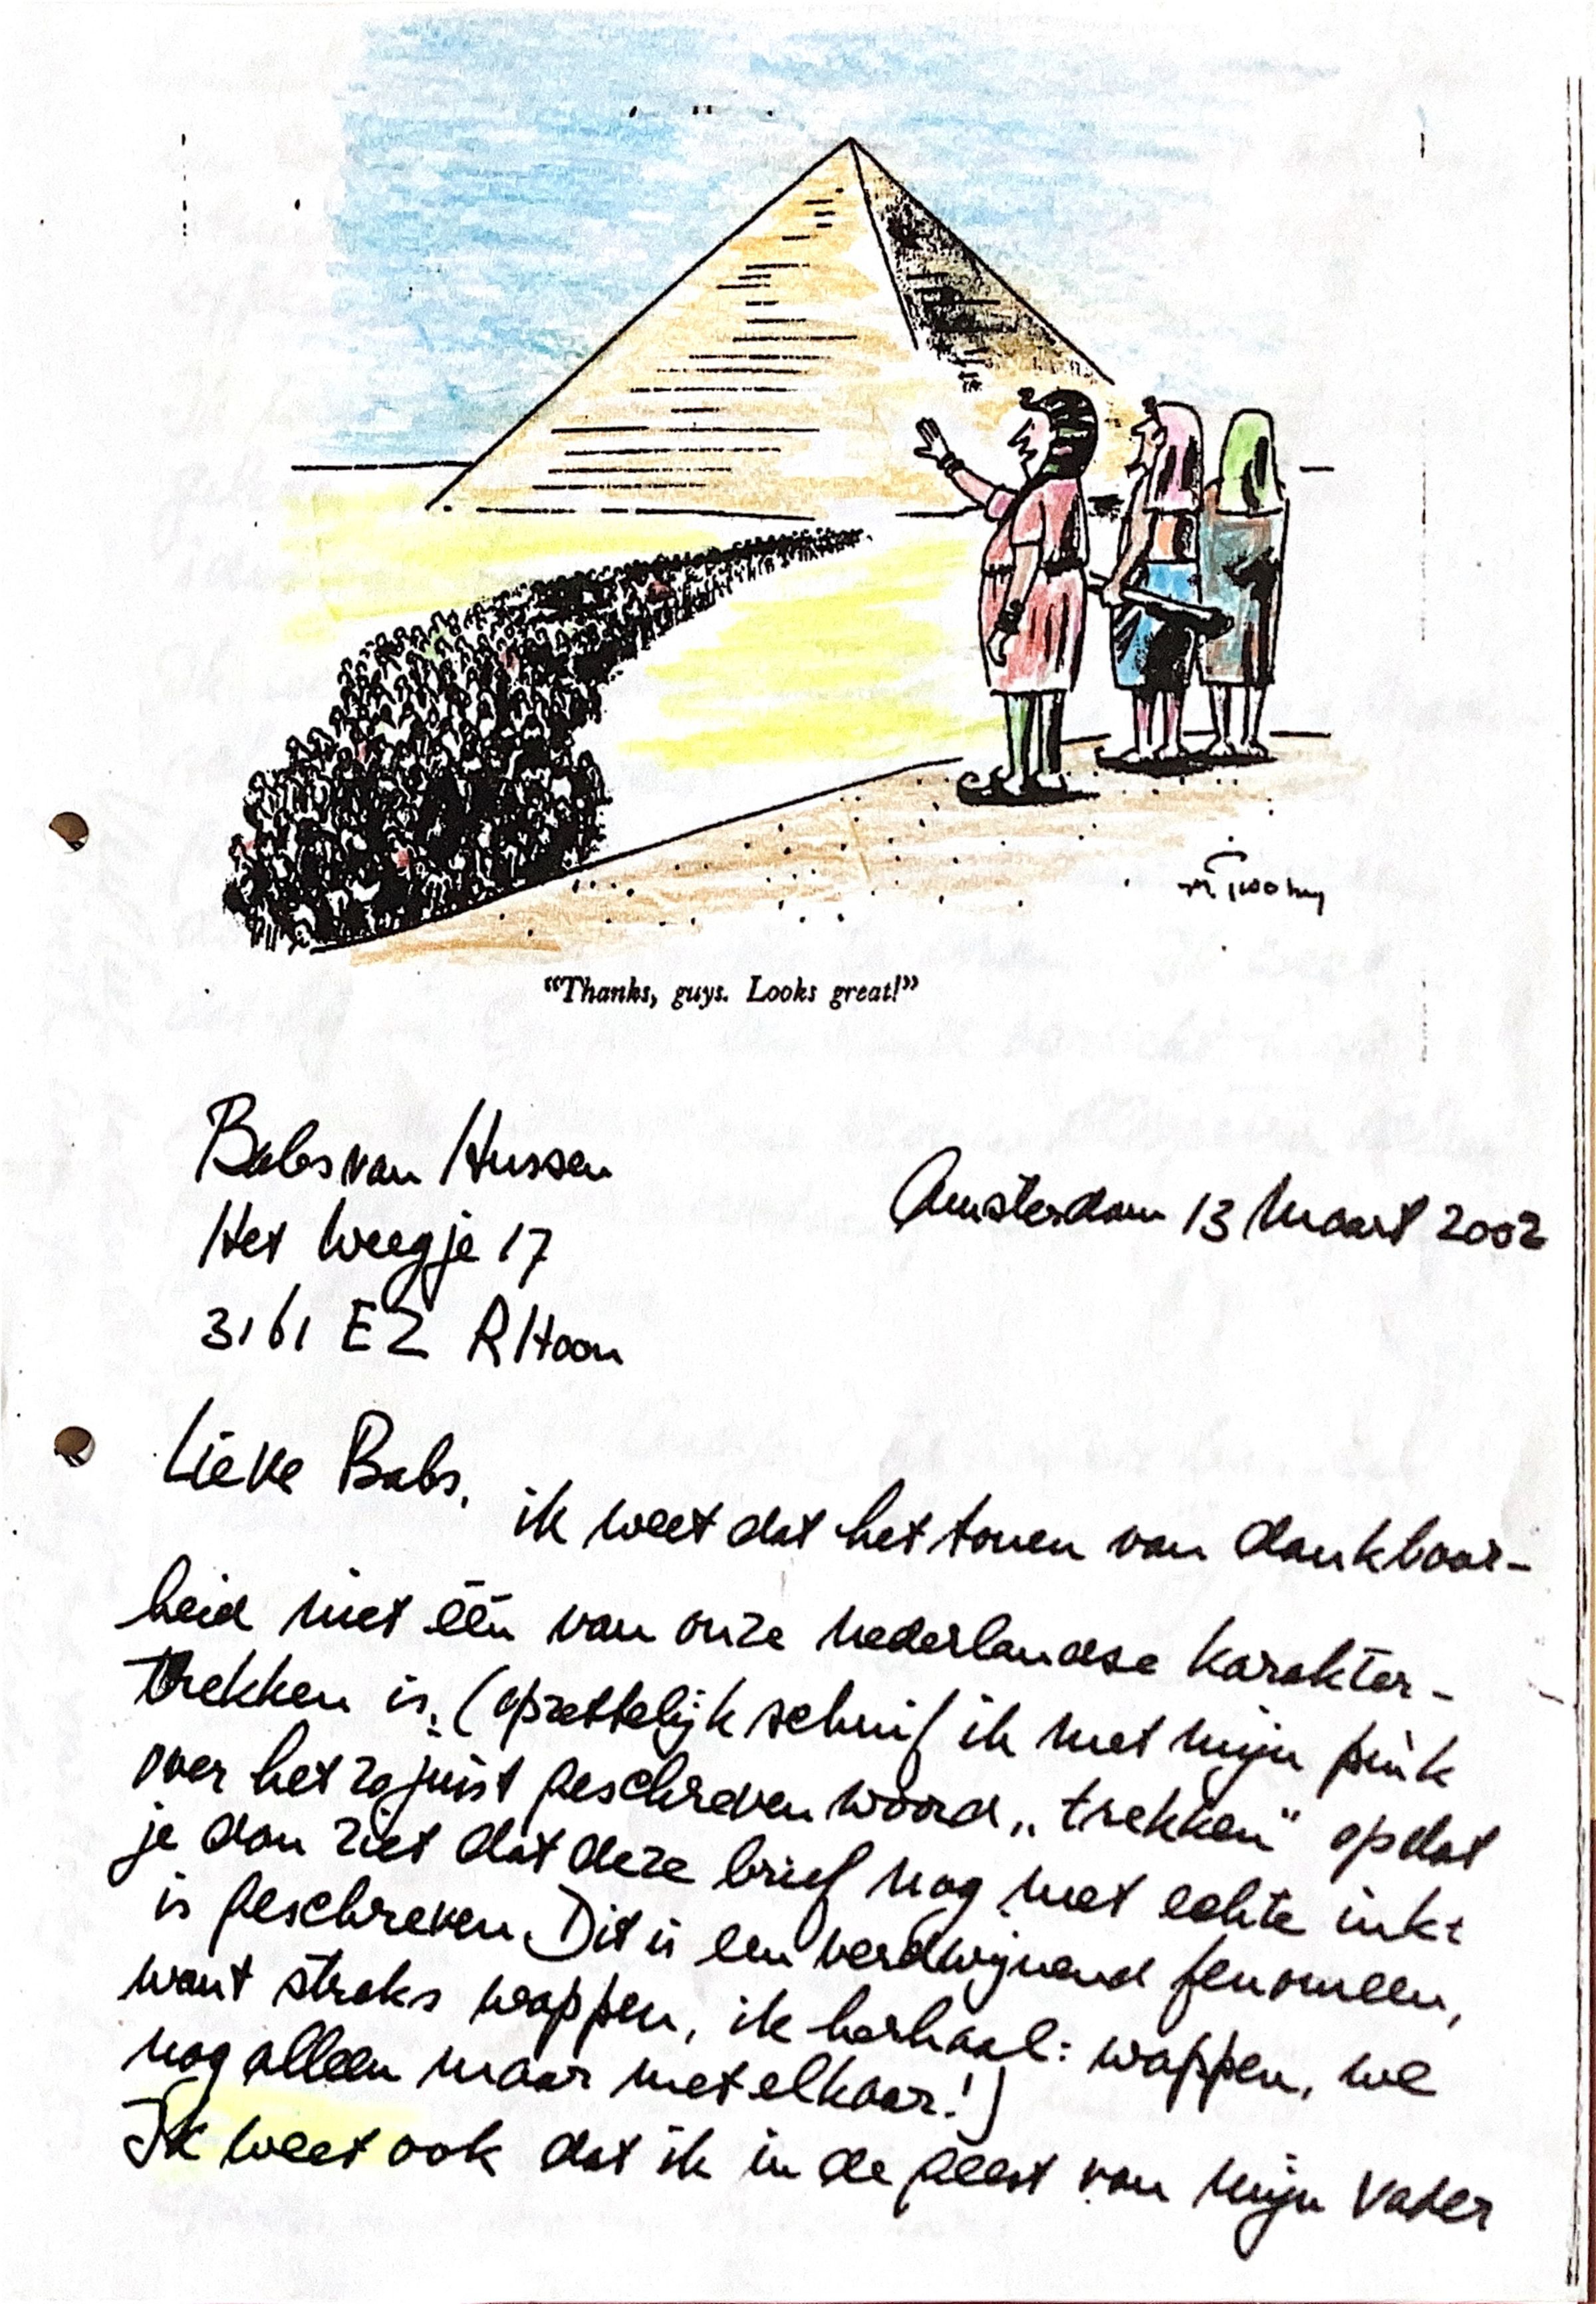 M. Twohy
"Thanks, guys. Looks great!"
Babs van Hussen
Het Weegje 17
3161 EZ RHoon
Amsterdam 13 Maart 2002
Lieve Babs,
ik weet dat het tonen van dankbaar-
heid niet één van onze nederlandse karakter-
trekken is. (opzettelijk schuif ik met mijn pink
over het zojuist geschreven woord „trekken" opdat
je dan ziet dat deze brief nog met echte inkt
is geschreven. Dit is een verdwijnend fenomeen,
want straks wappen, ik herhaal: wappen, we
nog alleen maar met elkaar!)
Ik weet ook dat ik in de geest van mijn vader